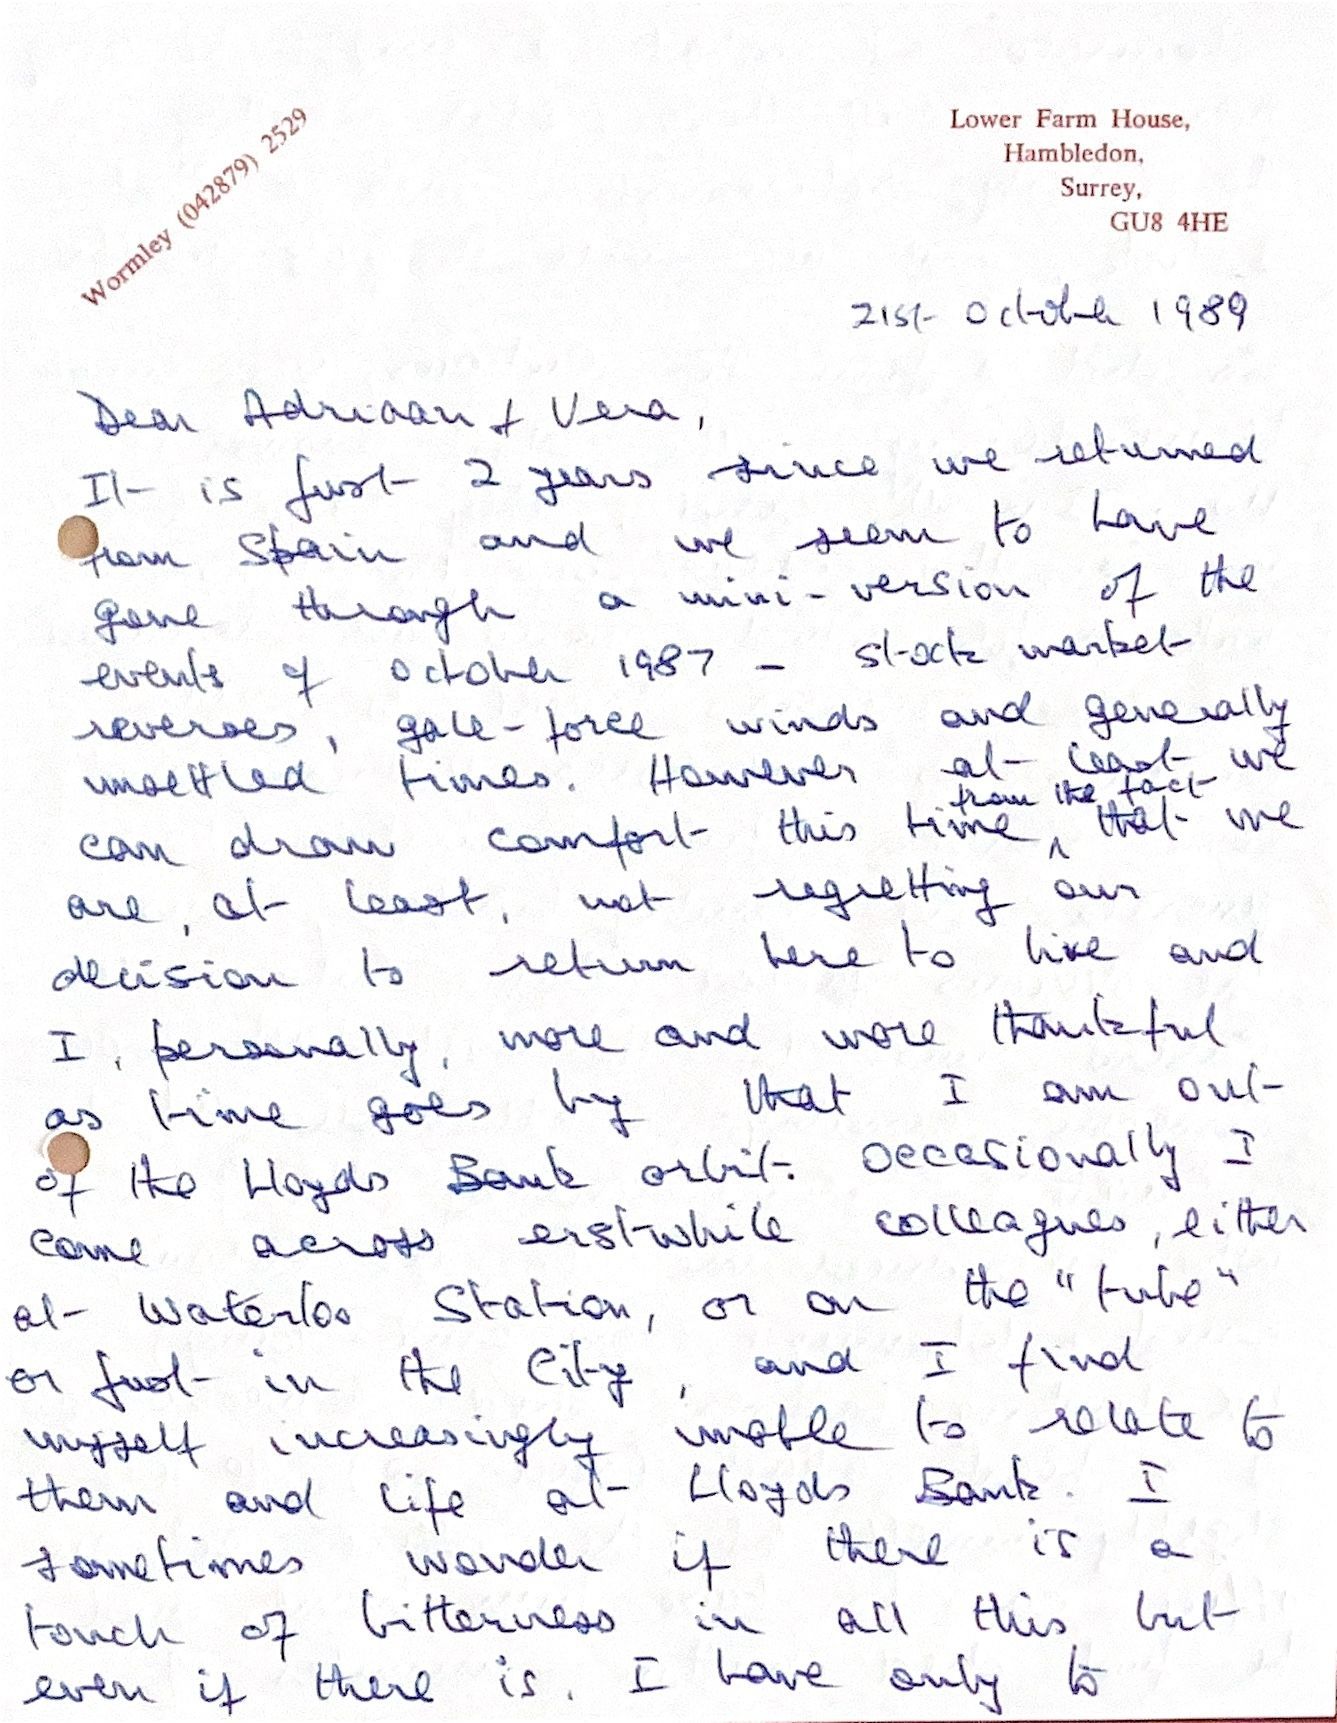 Wormley (042879) 2529
Lower Farm House,
Hambledon,
Surrey,
GU8 4HE
21st October 1989
Dear Adriaan & Vera,
It is just 2 years since we returned
from Spain and we seem to have
gone through a mini-version of the
events of October 1987 - stock market
reverses, gale-force winds and generally
unsettled times. However at least we
can draw comfort this time from the fact that we
are, at least, not regretting our
decision to return here to live and
I, personally, more and more thankful
as time goes by that I am out
of the Lloyds Bank orbit. Occasionally I
come across erstwhile colleagues, either
at Waterloo Station, or on the "tube"
or just in the City, and I find
myself increasingly unable to relate to
them and life at Lloyds Bank. I
sometimes wonder if there is a
touch of bitterness in all this but
even if there is, I have only to